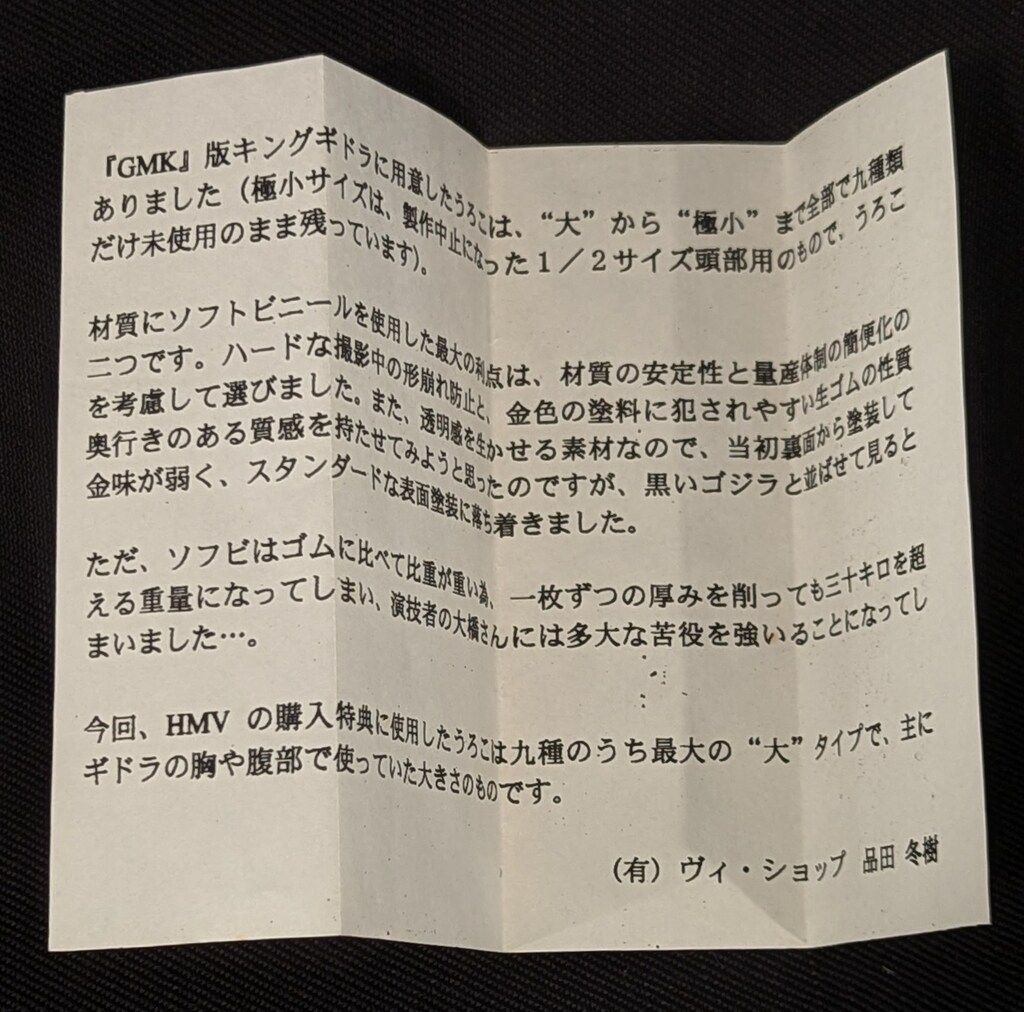 『GMK』版キングギドラに用意したうろこは、“大”から“極小”まで全部で九種類
ありました（極小サイズは、製作中止になった１／２サイズ頭部用のもので、うろこ
だけ未使用のまま残っています）。
材質にソフトビニールを使用した最大の利点は、材質の安定性と量産体制の簡便化の
二つです。ハードな撮影中の形崩れ防止と、金色の塗料に犯されやすい生ゴムの性質
を考慮して選びました。また、透明感を生かせる素材なので、当初裏面から塗装して
奥行きのある質感を持たせてみようと思ったのですが、黒いゴジラと並ばせて見ると
金味が弱く、スタンダードな表面塗装に落ち着きました。
ただ、ソフビはゴムに比べて比重が重い為、一枚ずつの厚みを削っても三十キロを超
える重量になってしまい、演技者の大橋さんには多大な苦役を強いることになってし
まいました…。
今回、HMV の購入特典に使用したうろこは九種のうち最大の“大”タイプで、主に
ギドラの胸や腹部で使っていた大きさのものです。
（有）ヴィ・ショップ 品田 冬樹